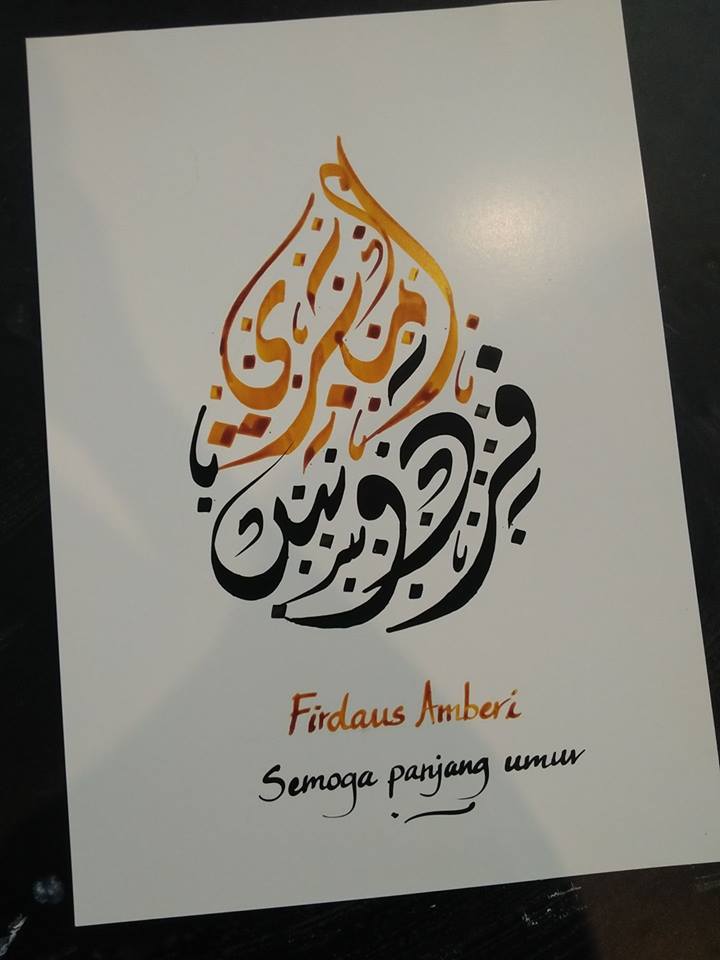 امبري
فردوس
Firdaus Amberi
Semoga panjang umur